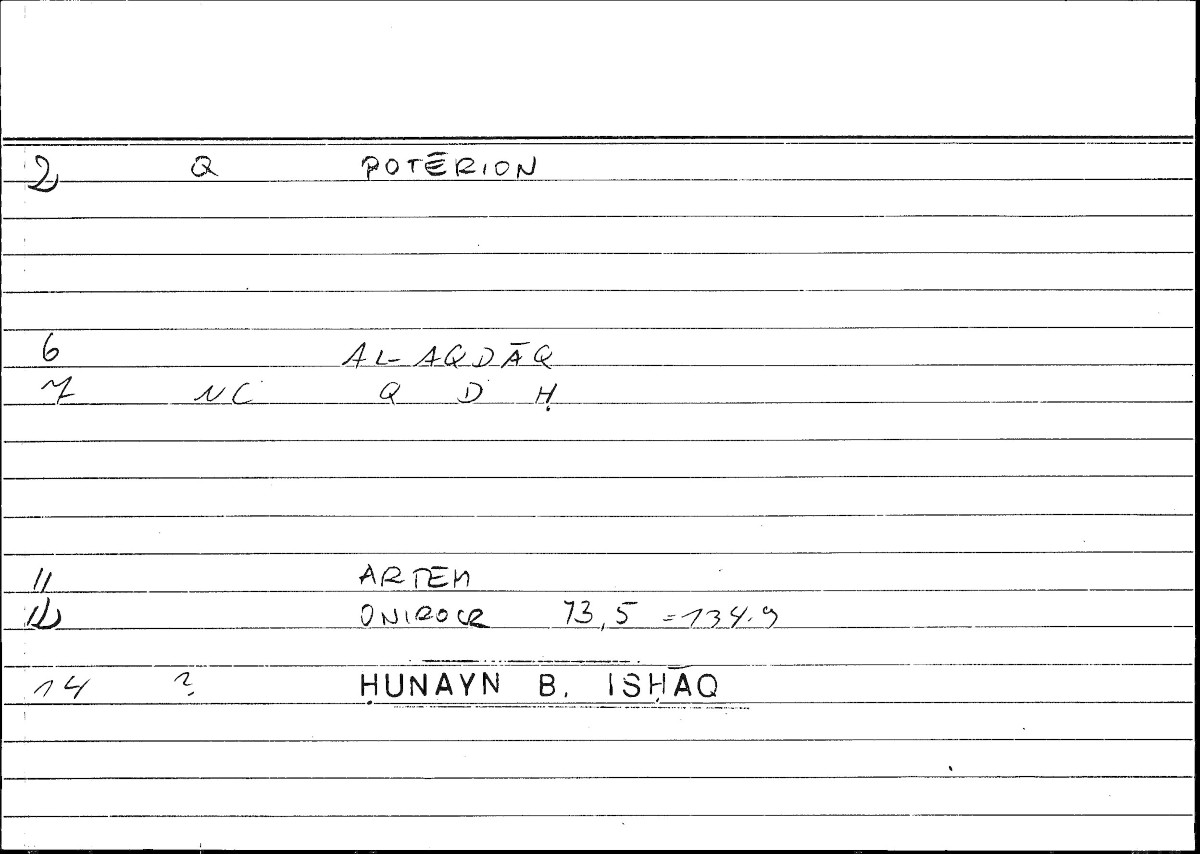 2 Q POTĒRION
6 AL-AQDĀQ
7 NC Q D Ḥ
11 ARTEM
12 ONIROCR 73,5 = 134.9
14 ? ḤUNAYN B. ISḤĀQ